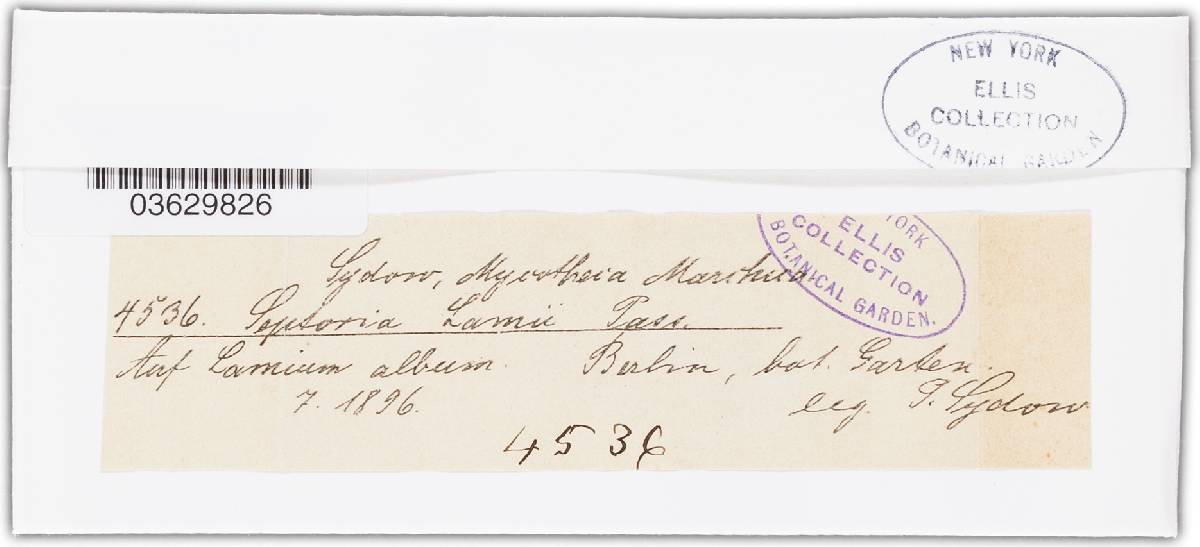 NEW YORK
ELLIS
COLLECTION
BOTANICAL GARDEN
03629826
YORK
ELLIS
COLLECTION
BOTANICAL GARDEN.
Sydow, Mycotheca Marchica
4536. Septoria Lamii Pass.
Auf Lamium album. Berlin, bot. Garten.
7. 1896. leg. P. Sydow
4536